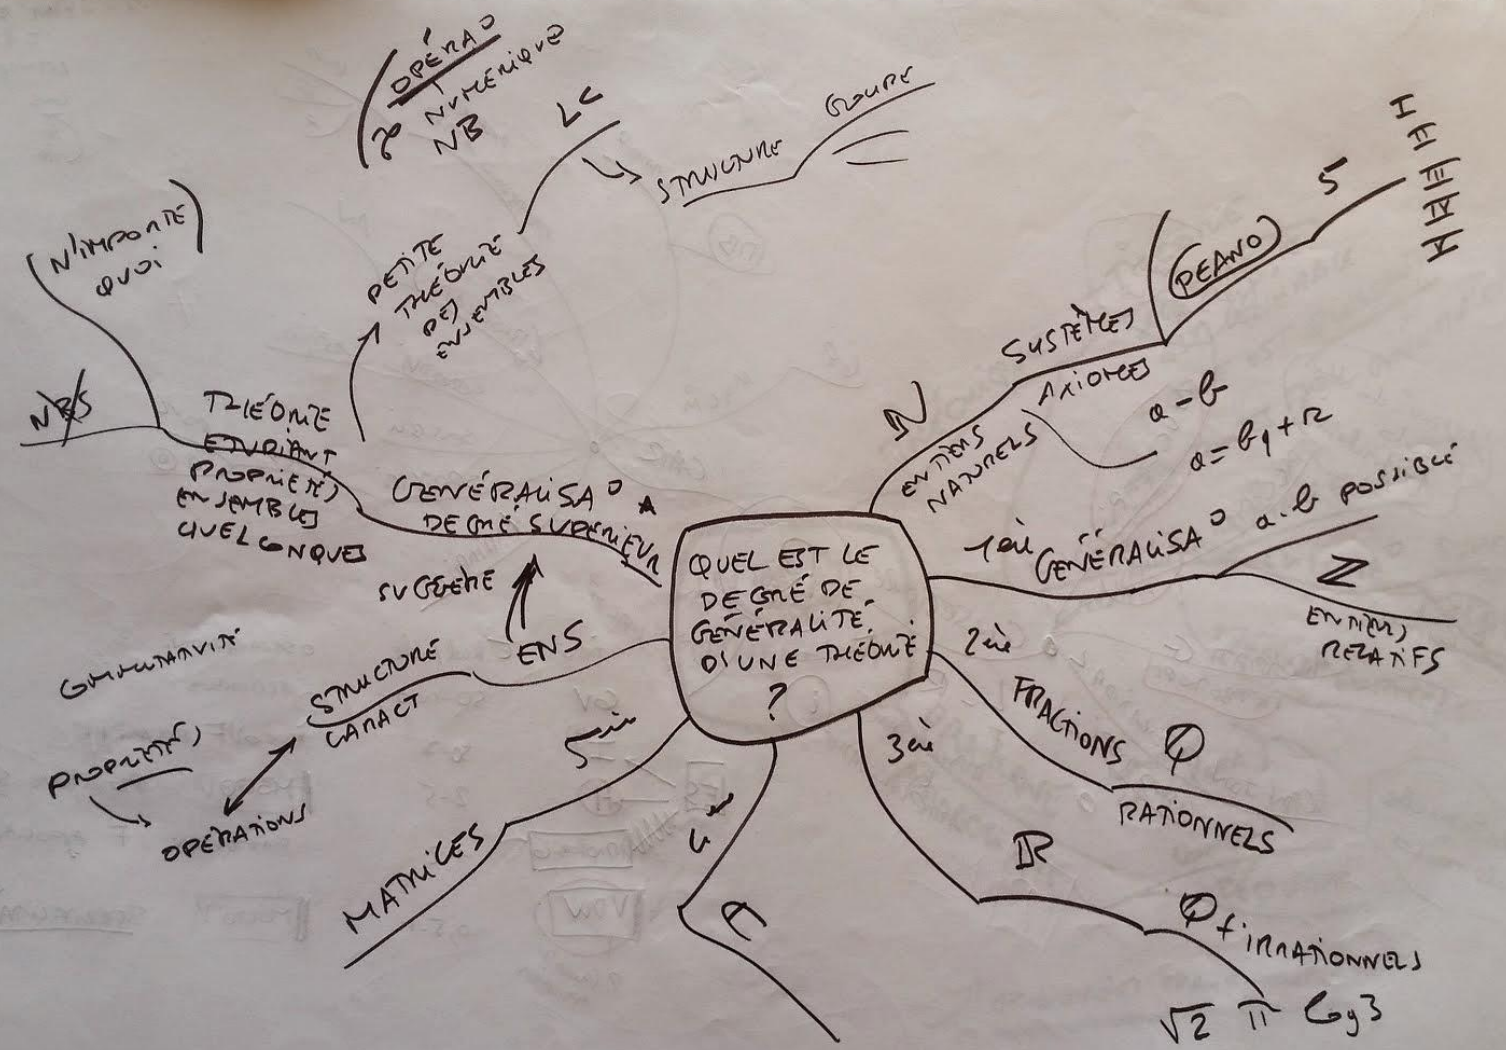 QUEL EST LE
DEGRÉ DE
GÉNÉRALITÉ
D'UNE THÉORIE
?
ℕ
ENTIERS
NATURELS
SYSTÈMES
AXIOMES
PEANO
5
I
II
III
IV
V
a - b
a = bq + r
1ère GÉNÉRALISA°
a - b POSSIBLE
ℤ
ENTIERS
RELATIFS
2ère
FRACTIONS
ℚ
RATIONNELS
3ère
ℝ
ℚ + IRRATIONNELS
√2 π log 3
4ère
ℂ
5ère
MATRICES
ENS
STRUCTURE
CARACT
OPÉRATIONS
PROPRIÉTÉS
COMMUTATIVITÉ
SUGGÈRE
GÉNÉRALISA° A
DEGRÉ SUPÉRIEUR
THÉORIE
ETUDIANT
PROPRIÉTÉS
ENSEMBLES
QUELCONQUES
NBS
(N'IMPORTE
QUOI)
PETITE
THÉORIE
DES
ENSEMBLES
LC
STRUCTURE
GROUPE
OPÉRA°
NUMÉRIQUE
NB